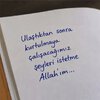 Ulaştıktan sonra
kurtulmaya
çalışacağımız
şeyleri istetme
Allah'ım...